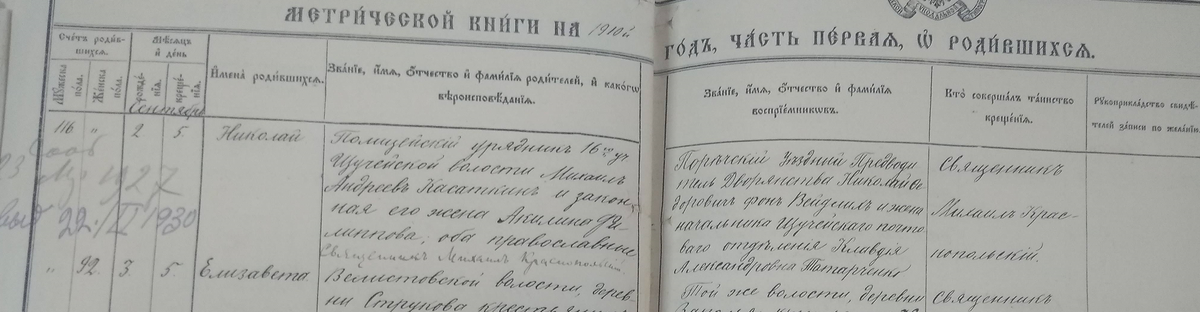 МЕТРИ́ЧЕСКОЙ КНИ́ГИ НА 1910й
ГО́ДЪ, ЧА́СТЬ ПЕ́РВАЯ, Ѡ РОДИ́ВШИХСЯ.
Сче́тъ роди́вшихся.
Мѣ́сяцъ и̂ де́нь
Му́жеска по́ла.
Же́нска по́ла.
рожде́нїя.
креще́нїя.
И҆мена̀ роди́вшихся.
Зва́нїе, и҆́мя, ѻ҆́тчество и҆ фами́лїя роди́телей, и҆ како́гѡ
вѣроисповѣ́данїя.
Зва́нїе, и҆́мя, ѻ҆́тчество и҆ фами́лїя
воспрїе́мниковъ.
Кто̀ соверша́лъ та́инство
креще́нїя.
Рꙋкоприкла́дство свидѣ́-
телей за́писи по жела́нїю
Сентябрь
116. " 2 5. Николай
Полицейскій урядникъ 16го уч.
Щучейской волости Михаилъ
Андреевъ Касаткинъ и закон-
ная его жена Акилина Фи-
липпова, оба православные
Священникъ Михаилъ Краснопольскій
Порѣчскій Уѣздный Предводи
тель Дворянства Николай Ѳе
доровичъ фонъ Вейделихъ и жена
начальника Щучейскаго почто
ваго отдѣленія Клавдія
Александровна Татарченко
Священникъ
Михаилъ Крас-
нопольскій.
1927
22/II 1930
" 92. 3. 5. Елизавета.
Велистовской волости, дерев-
ни Струкова
Той же волости, деревни
Священникъ